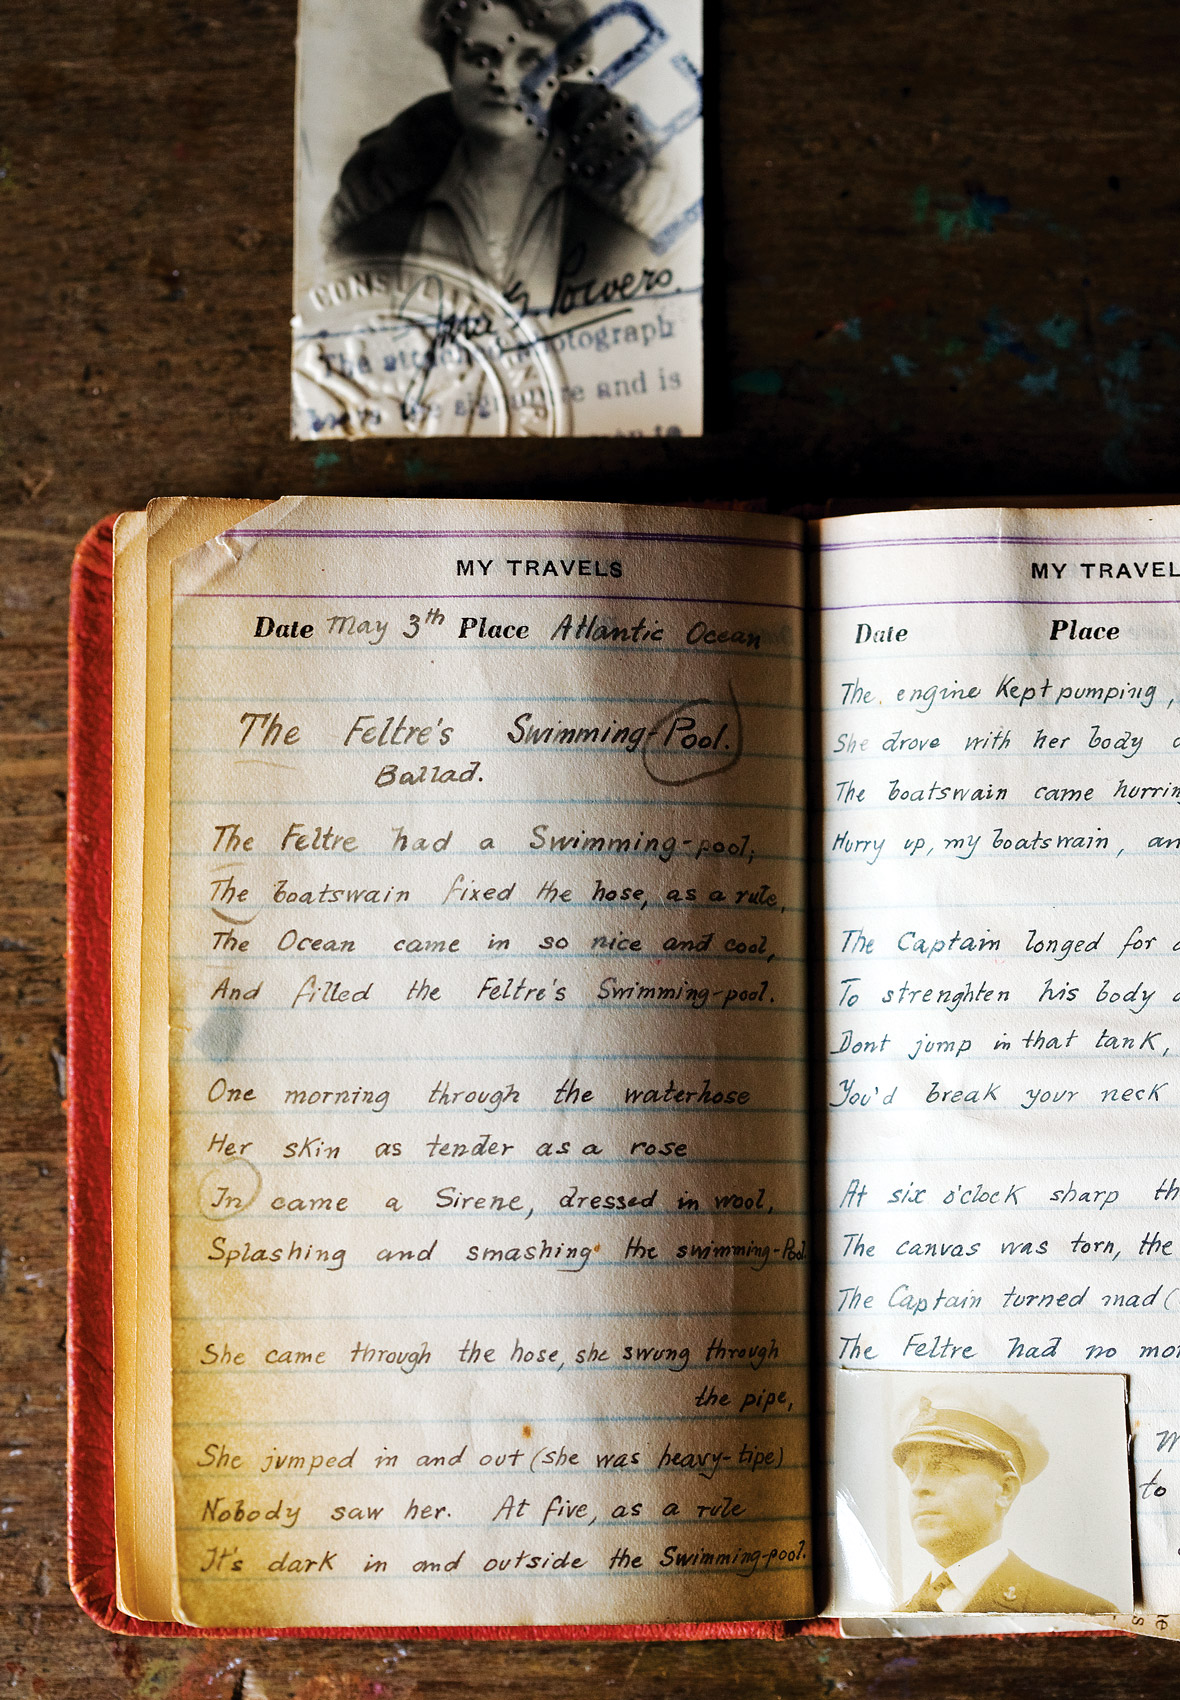 CONSUL
G. Powers.
The attached photograph
bears the signature and is
MY TRAVELS
Date May 3th Place Atlantic Ocean
The Feltre's Swimming-Pool.
Ballad.
The Feltre had a Swimming-pool;
The boatswain fixed the hose, as a rule,
The Ocean came in so nice and cool,
And filled the Feltre's Swimming-pool.
One morning through the waterhose
Her skin as tender as a rose
In came a Sirene, dressed in wool,
Splashing and smashing the swimming-Pool.
She came through the hose, she swung through
the pipe,
She jumped in and out (she was heavy-tipe)
Nobody saw her. At five, as a rule
It's dark in and outside the Swimming-pool.
MY TRAVEL
Date Place
The engine Kept pumping,
She drove with her body
The boatswain came hurrin
Hurry up, my boatswain, an
The Captain longed for
To strenghten his body
Dont jump in that tank,
You'd break your neck
At six o'clock sharp th
The canvas was torn, the
The Captain turned mad (
The Feltre had no mo
to